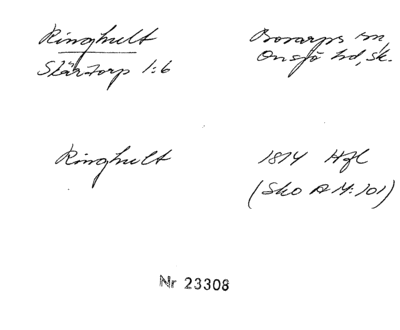 Ringhult Bosarps sn,
Stärtorp 1:6 Onsjö hd, Sk.
Ringhult 1814 Hfl
(Sko A I 4:101)
Nr 23308